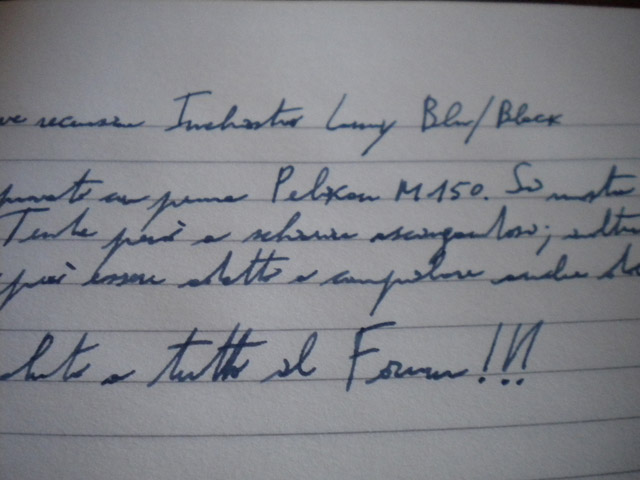 ve recensione Inchiostro Lamy Blu/Black
provato con penna Pelikan M150. Si mostra
Tende però a schiarire asciugandosi; inoltre
può essere adatto a compilare anche
saluto a tutto il Forum!!!